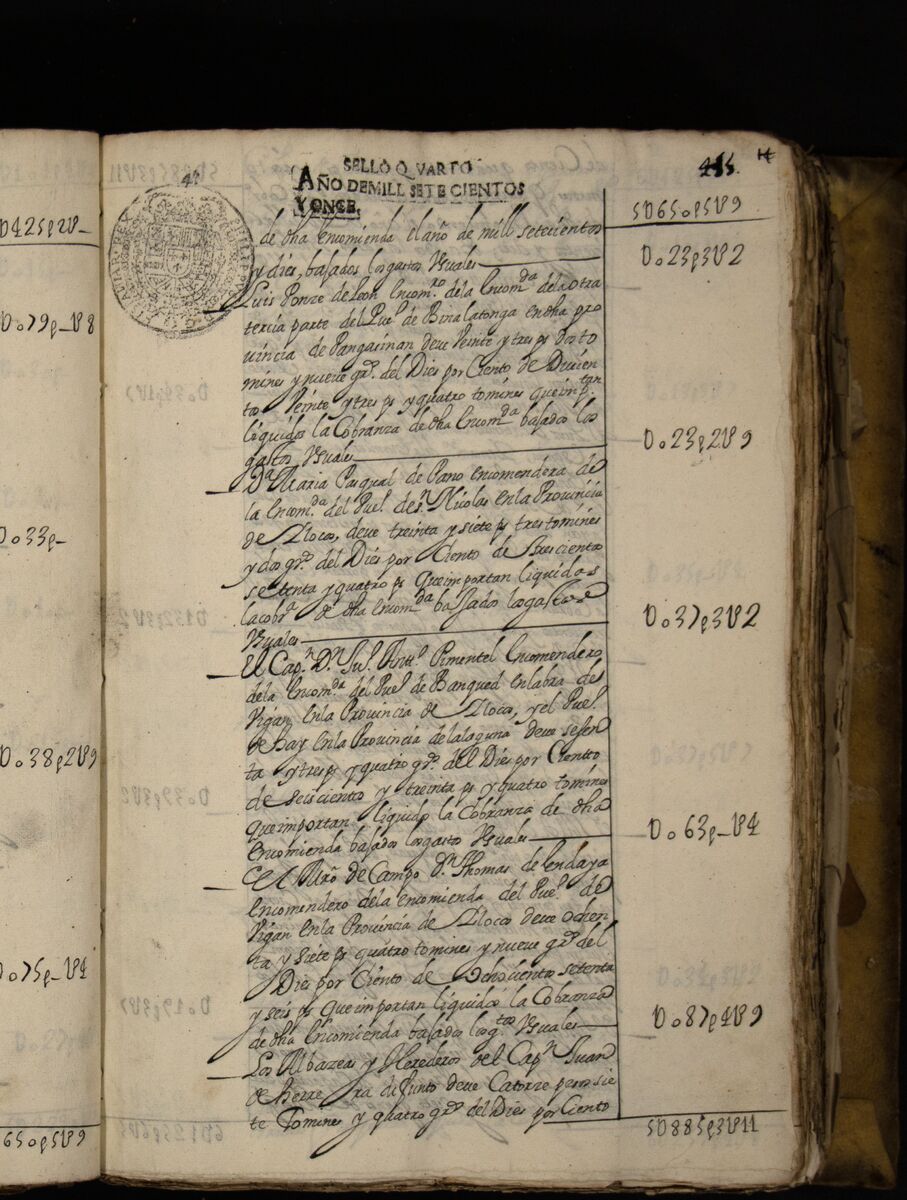 SELLO QVARTO
AÑO DEMILL SETECIENTOS
YONCE.
455.
5U650p5U9
de dha encomienda el año de mill setecientos
y dies, bajados los gastos Usuales
Uo23p3U2
Luis Ponze de Leon Encom.ro dela Encom.da dela otra
tercia parte del Pue.o de Binalatonga en dha pro
vincia de Pangasinan deve Veinte y tres ps dos to
mines y nueve gr.s del Dies por Ciento de Duçien
tos Veinte y tres ps y quatro tomines que imp.tan
liquidos la Cobranza de dha Encom.da bajados los
gastos Usuales
Uo23p2U9
D.a Maria Pasqual de Pano encomendera de
la Encom.da del Pue.o de S.n Nicolas en la Provincia
de Ylocos, deve treinta y siete ps tres tomines
y dos gr.s del Dies por Ciento de trescientos
setenta y quatro ps que importan liquidos
la cobr.a de dha Encom.da bajados los gastos
Usuales
Uo37p3U2
El Cap.n D.n Ju.o Antt.o Pimentel Encomendero
dela Encom.da del Pue.o de Bangued en la bra de
Vigan, en la Provincia de Ylocos, y el Pue.o
de bay en la Provincia de la laguna deve sesen
ta y tres ps y quatro gr.s del Dies por Ciento
de seiscientos y treinta ps y quatro tomines
que importan liquido la Cobranza de dha
encomienda bajados los gastos Usuales
Uo63p_U4
El Mro de Campo D.n Thomas de Endaya
Encomendero dela encomienda del Pue.o de
Vigan en la Provincia de Ylocos deve ochen
ta y siete ps quatro tomines y nueve gr.s del
Dies por Ciento de ochocientos setenta
y seis ps que importan liquidos la Cobranza
de dha Encomienda bajados los g.tos Usuales
Uo87p4U9
Los Albazeas y Herederos del Cap.n Juan
de Herrera difunto deve Catorze pesos sie
te Tomines y quatro gr.s del Dies por Ciento
5U885p3U11
U425p2U_
Uo79p_U8
Uo33p_
Uo38p2U9
Uo75p_U4
650p5U9